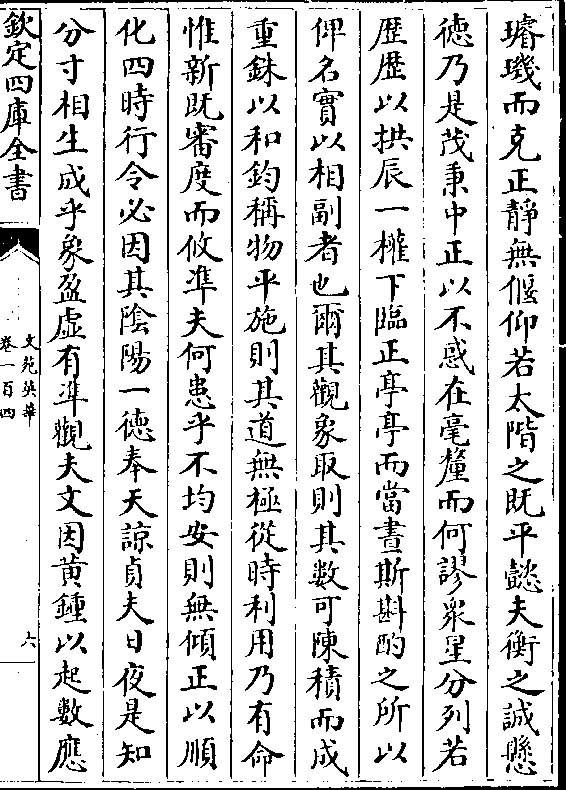 璿璣而克正靜無偃仰若太階之既平懿夫衡之誠懸
徳乃是茂秉中正以不惑在毫釐而何謬衆星分列若
歴歴以拱辰一權下臨正亭亭而當晝斯斟酌之所以
俾名實以相副者也爾其觀象取則其數可陳積而成
重銖以和鈞稱物平施則其道無極從時利用乃有命
惟新既審度而攸準夫何患乎不均安則無傾正以順
化四時行令必因其陰陽一徳奉天諒貞夫日夜是知
分寸相生成乎象盈虛有準觀夫文因黄鍾以起數應
欽定四庫全書
文苑英華
卷一百四
六